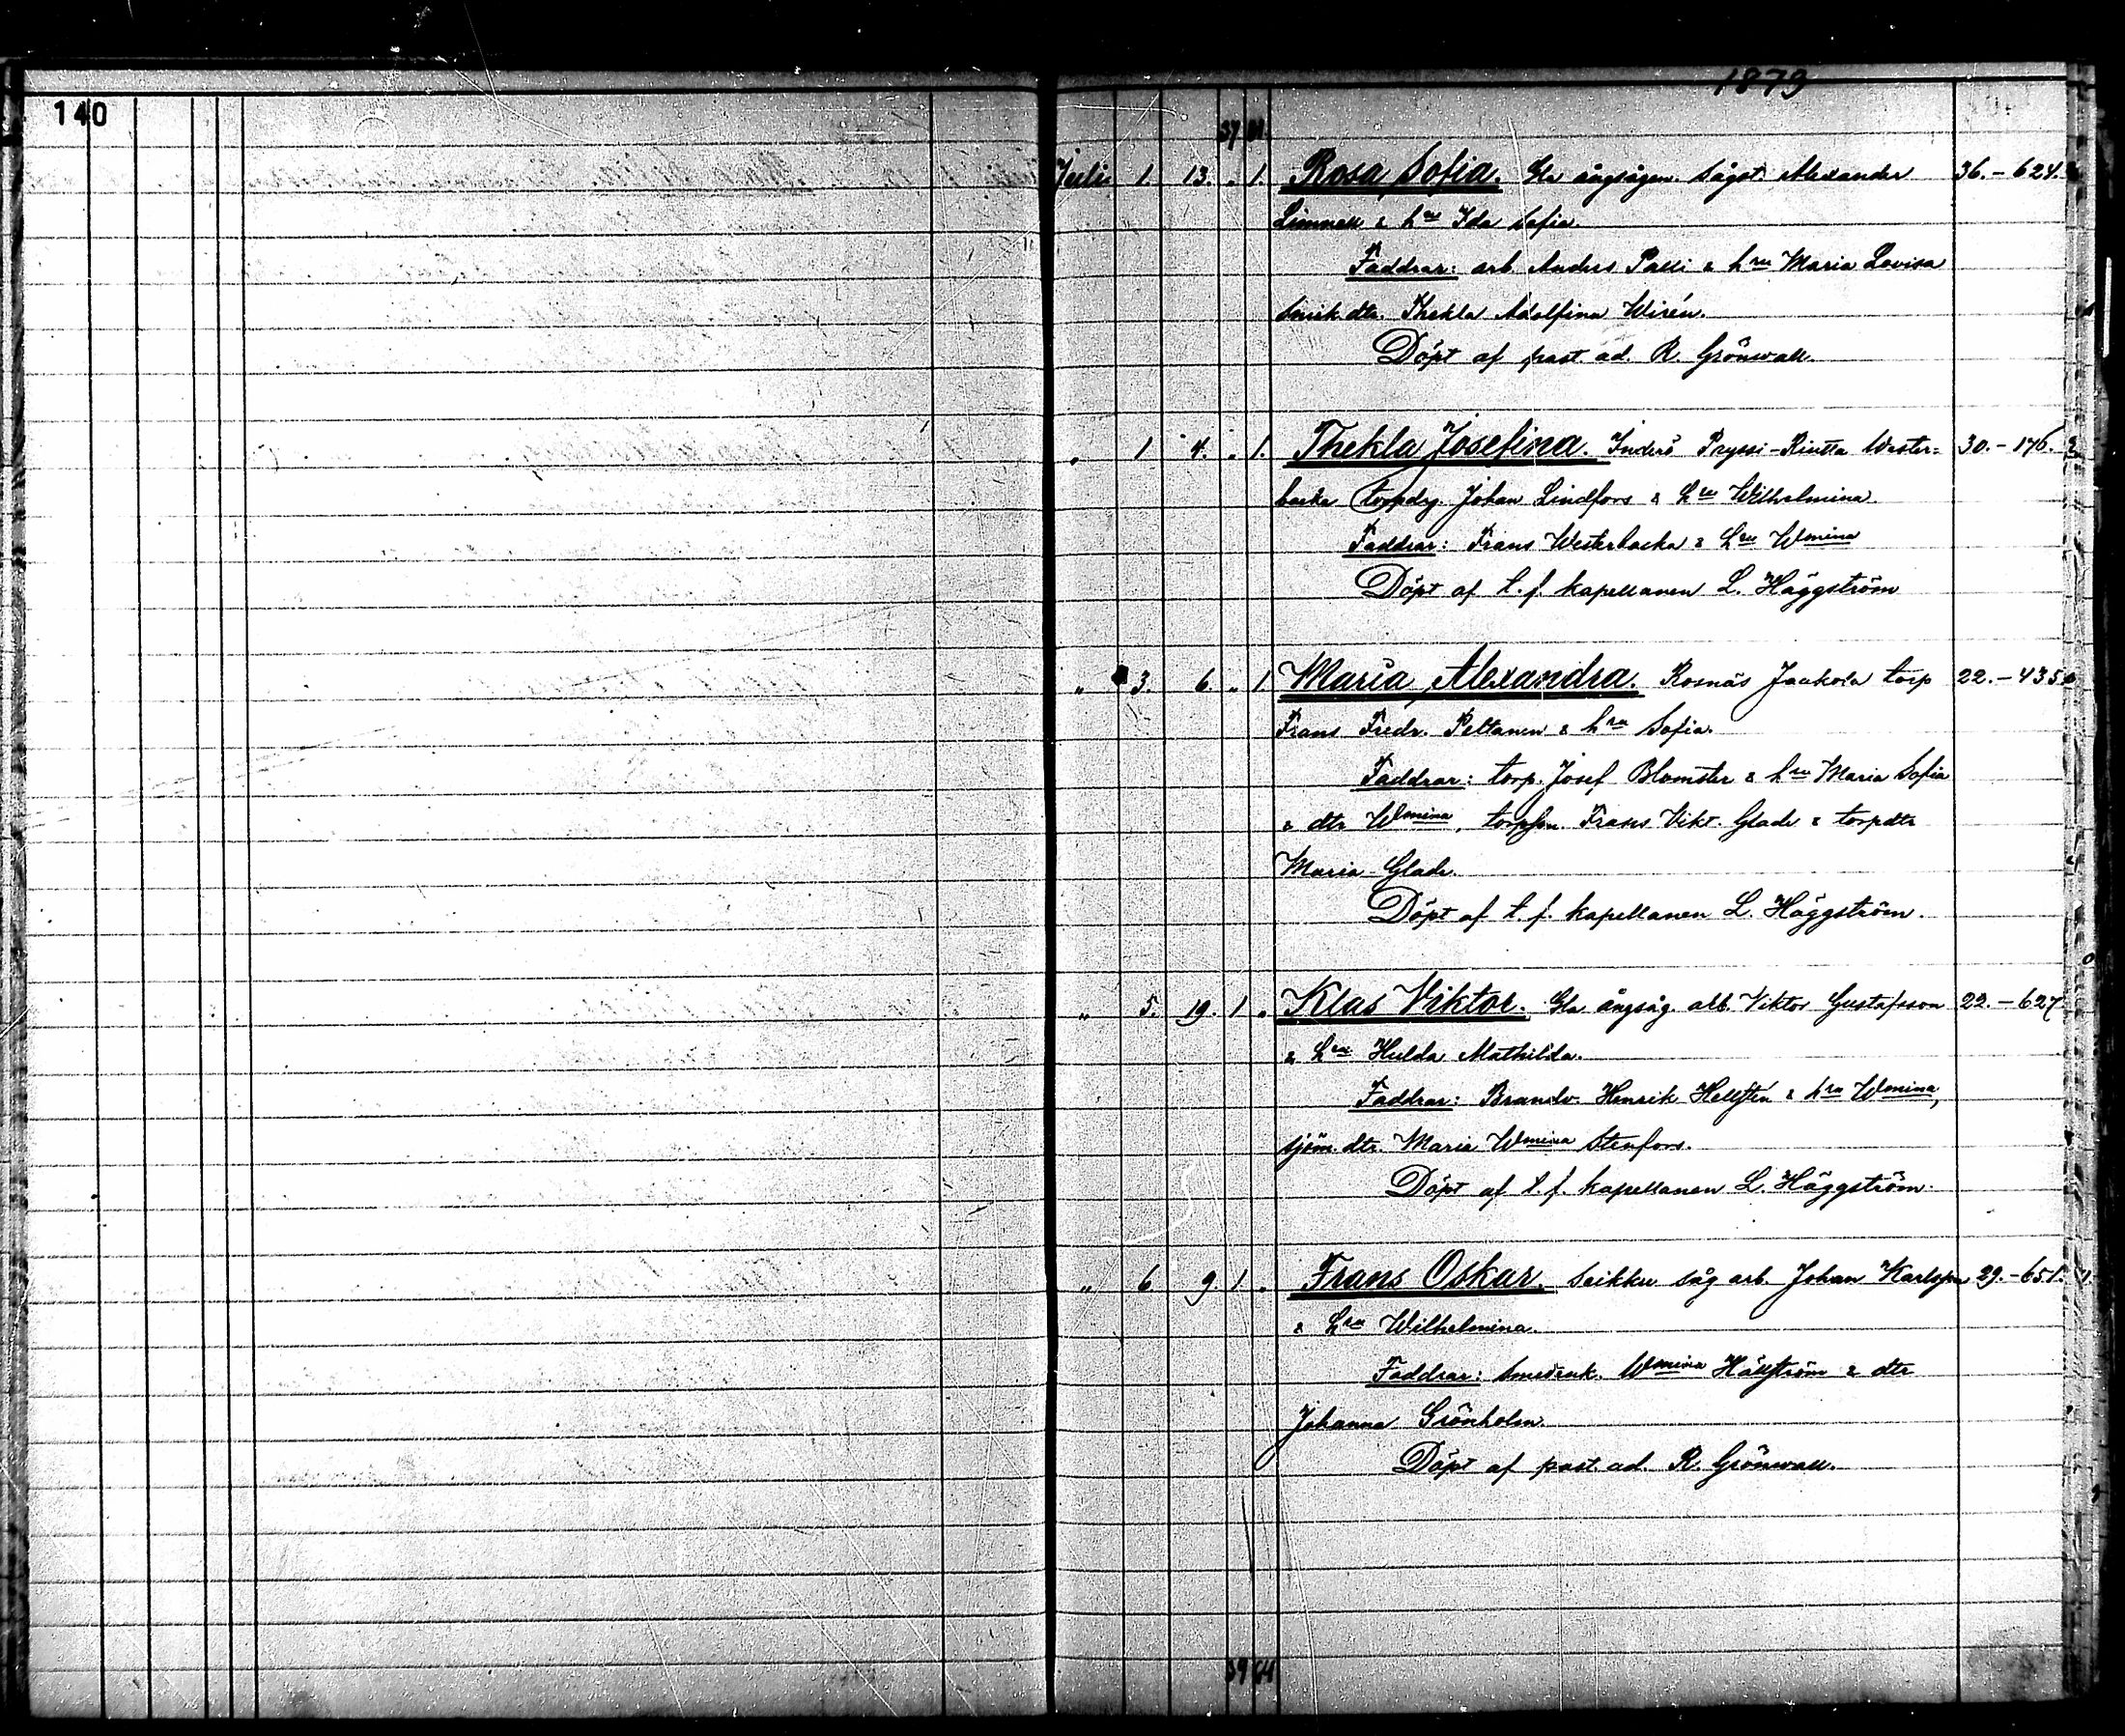 1879
140
37 61.
Juli 1. 13. „ 1. Rosa Sofia. Gla ångsågen. Sågst. Alexander 36. - 624.
Limnell & hru Ida Sofia.
Faddrar: arb. Anders Palli & hru Maria Lovisa
Snick. dtr. Thekla Adolfina Wirén.
Döpt af past. ad. R. Grönwall.
„ 1 4. „ 1. Thekla Josefina. Inderö Pryssi-Rintta Wester= 30. - 176.
backa torpdrg. Johan Lindfors & hru Wilhelmina.
Faddrar: Frans Westerbacka & hru Wmina
Döpt af t. f. kapellanen L. Häggström
„ 3. 6. „ 1 Maria Alexandra. Rosnäs Jaakola torp 22. - 435
Frans Fredr. Peltanen & hru Sofia.
Faddrar: torp. Josef Blomster & hru Maria Sofia
& dtr Wmina, torpson. Frans Vikt. Glade & torpdtr
Maria Glade.
Döpt af t. f. kapellanen L. Häggström.
„ 5. 19. 1 „ Klas Viktor. Gla ångsåg. arb. Viktor Gustafsson 22. - 627
& hru Hulda Mathilda.
Faddrar: Brandv. Henrik Hellstén & hru Wmina,
sjöm. dtr. Maria Wmina Stenfors.
Döpt af t. f. kapellanen L. Häggström.
„ 6 9. 1 „ Frans Oskar. Seikku såg arb. Johan Karlsson 29. - 651.
& hru Wilhelmina.
Faddrar: Smedenk. Wmina Hällström & dtr
Johanna Grönholm.
Döpt af past. ad. R. Grönwall.
39 64